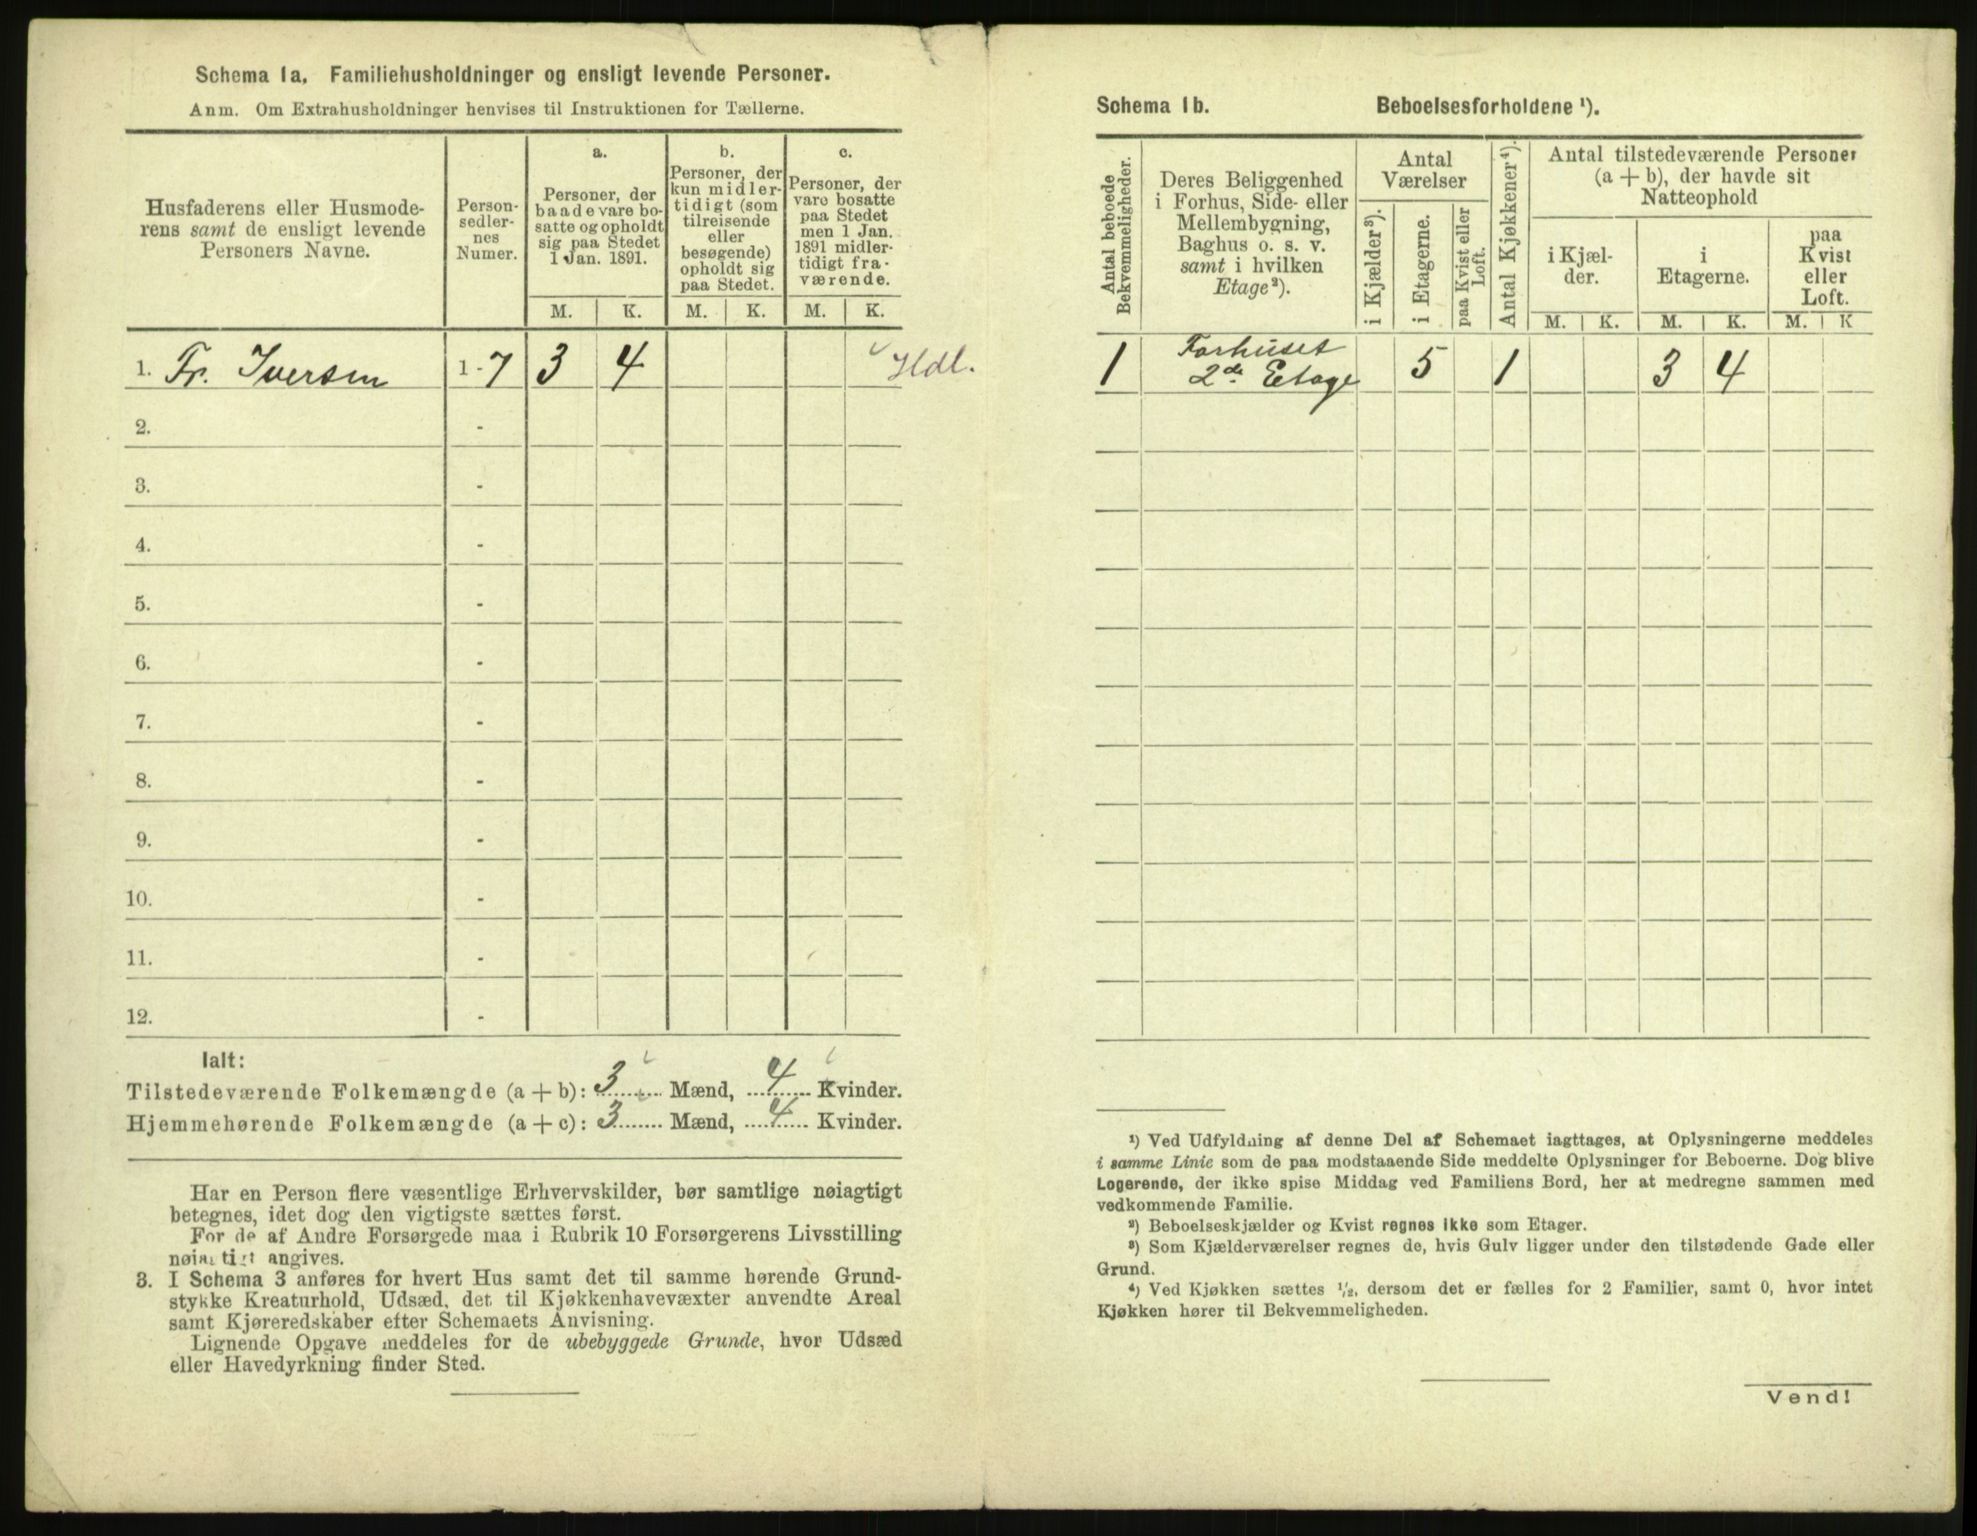 Schema 1a. Familiehusholdninger og ensligt levende Personer.
Anm. Om Extrahusholdninger henvises til Instruktionen for Tællerne.
Husfaderens eller Husmode-
rens samt de ensligt levende
Personers Navne.
Person-
sedler-
nes
Numer.
a.
Personer, der
baade vare bo-
satte og opholdt
sig paa Stedet
1 Jan. 1891.
b.
Personer, der
kun midler-
tidigt (som
tilreisende
eller
besøgende)
opholdt sig
paa Stedet.
c.
Personer, der
vare bosatte
paa Stedet
men 1 Jan.
1891 midler-
tidigt fra-
værende.
M. K. M. K. M. K.
1. Fr. Iversen 1-7 3 4 Hdl.
2. -
3. -
4. -
5. -
6. -
7. -
8. -
9. -
10. -
11. -
12. -
Ialt:
Tilstedeværende Folkemængde (a+b): 3 Mænd, 4 Kvinder.
Hjemmehørende Folkemængde (a+c): 3 Mænd, 4 Kvinder.
Har en Person flere væsentlige Erhvervskilder, bør samtlige nøiagtigt
betegnes, idet dog den vigtigste sættes først.
For de af Andre Forsørgede maa i Rubrik 10 Forsørgerens Livsstilling
nøiagtigt angives.
3. I Schema 3 anføres for hvert Hus samt det til samme hørende Grund-
stykke Kreaturhold, Udsæd, det til Kjøkkenhavevæxter anvendte Areal
samt Kjøreredskaber efter Schemaets Anvisning.
Lignende Opgave meddeles for de ubebyggede Grunde, hvor Udsæd
eller Havedyrkning finder Sted.
Schema 1b. Beboelsesforholdene ¹).
Antal beboede
Bekvemmeligheder.
Deres Beliggenhed
i Forhus, Side- eller
Mellembygning,
Baghus o. s. v.
samt i hvilken
Etage²).
Antal
Værelser
i Kjælder³).
i Etagerne.
paa Kvist eller
Loft.
Antal Kjøkkener⁴).
Antal tilstedeværende Personer
(a + b), der havde sit
Natteophold
i Kjæl-
der.
i
Etagerne.
paa
Kvist
eller
Loft.
M. K. M. K. M. K
1 Forhuset
2de Etage 5 1 3 4
¹) Ved Udfyldning af denne Del af Schemaet iagttages, at Oplysningerne meddeles
i samme Linie som de paa modstaaende Side meddelte Oplysninger for Beboerne. Dog blive
Logerende, der ikke spise Middag ved Familiens Bord, her at medregne sammen med
vedkommende Familie.
²) Beboelseskjælder og Kvist regnes ikke som Etager.
³) Som Kjælderværelser regnes de, hvis Gulv ligger under den tilstødende Gade eller
Grund.
⁴) Ved Kjøkken sættes ½, dersom det er fælles for 2 Familier, samt 0, hvor intet
Kjøkken hører til Bekvemmeligheden.
Vend!